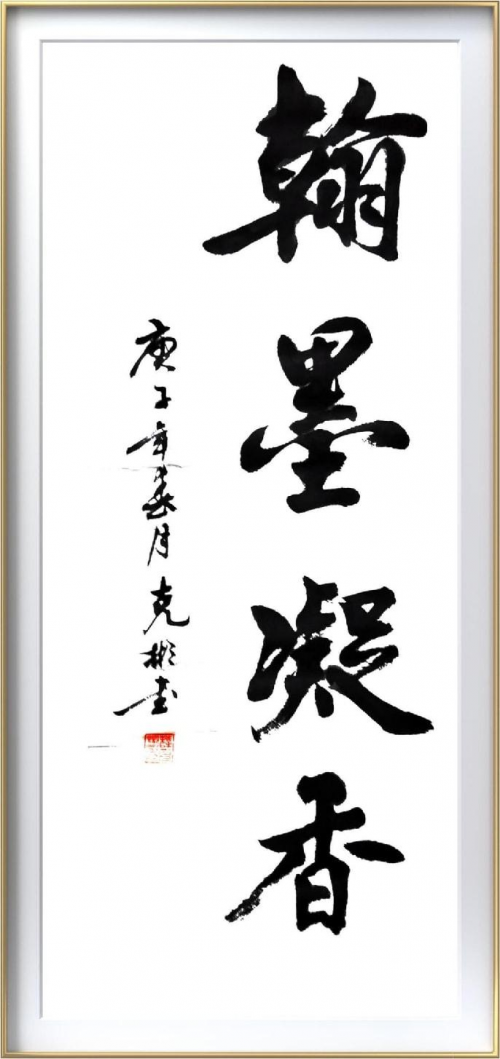 翰墨凝香
庚子年春月克彬书